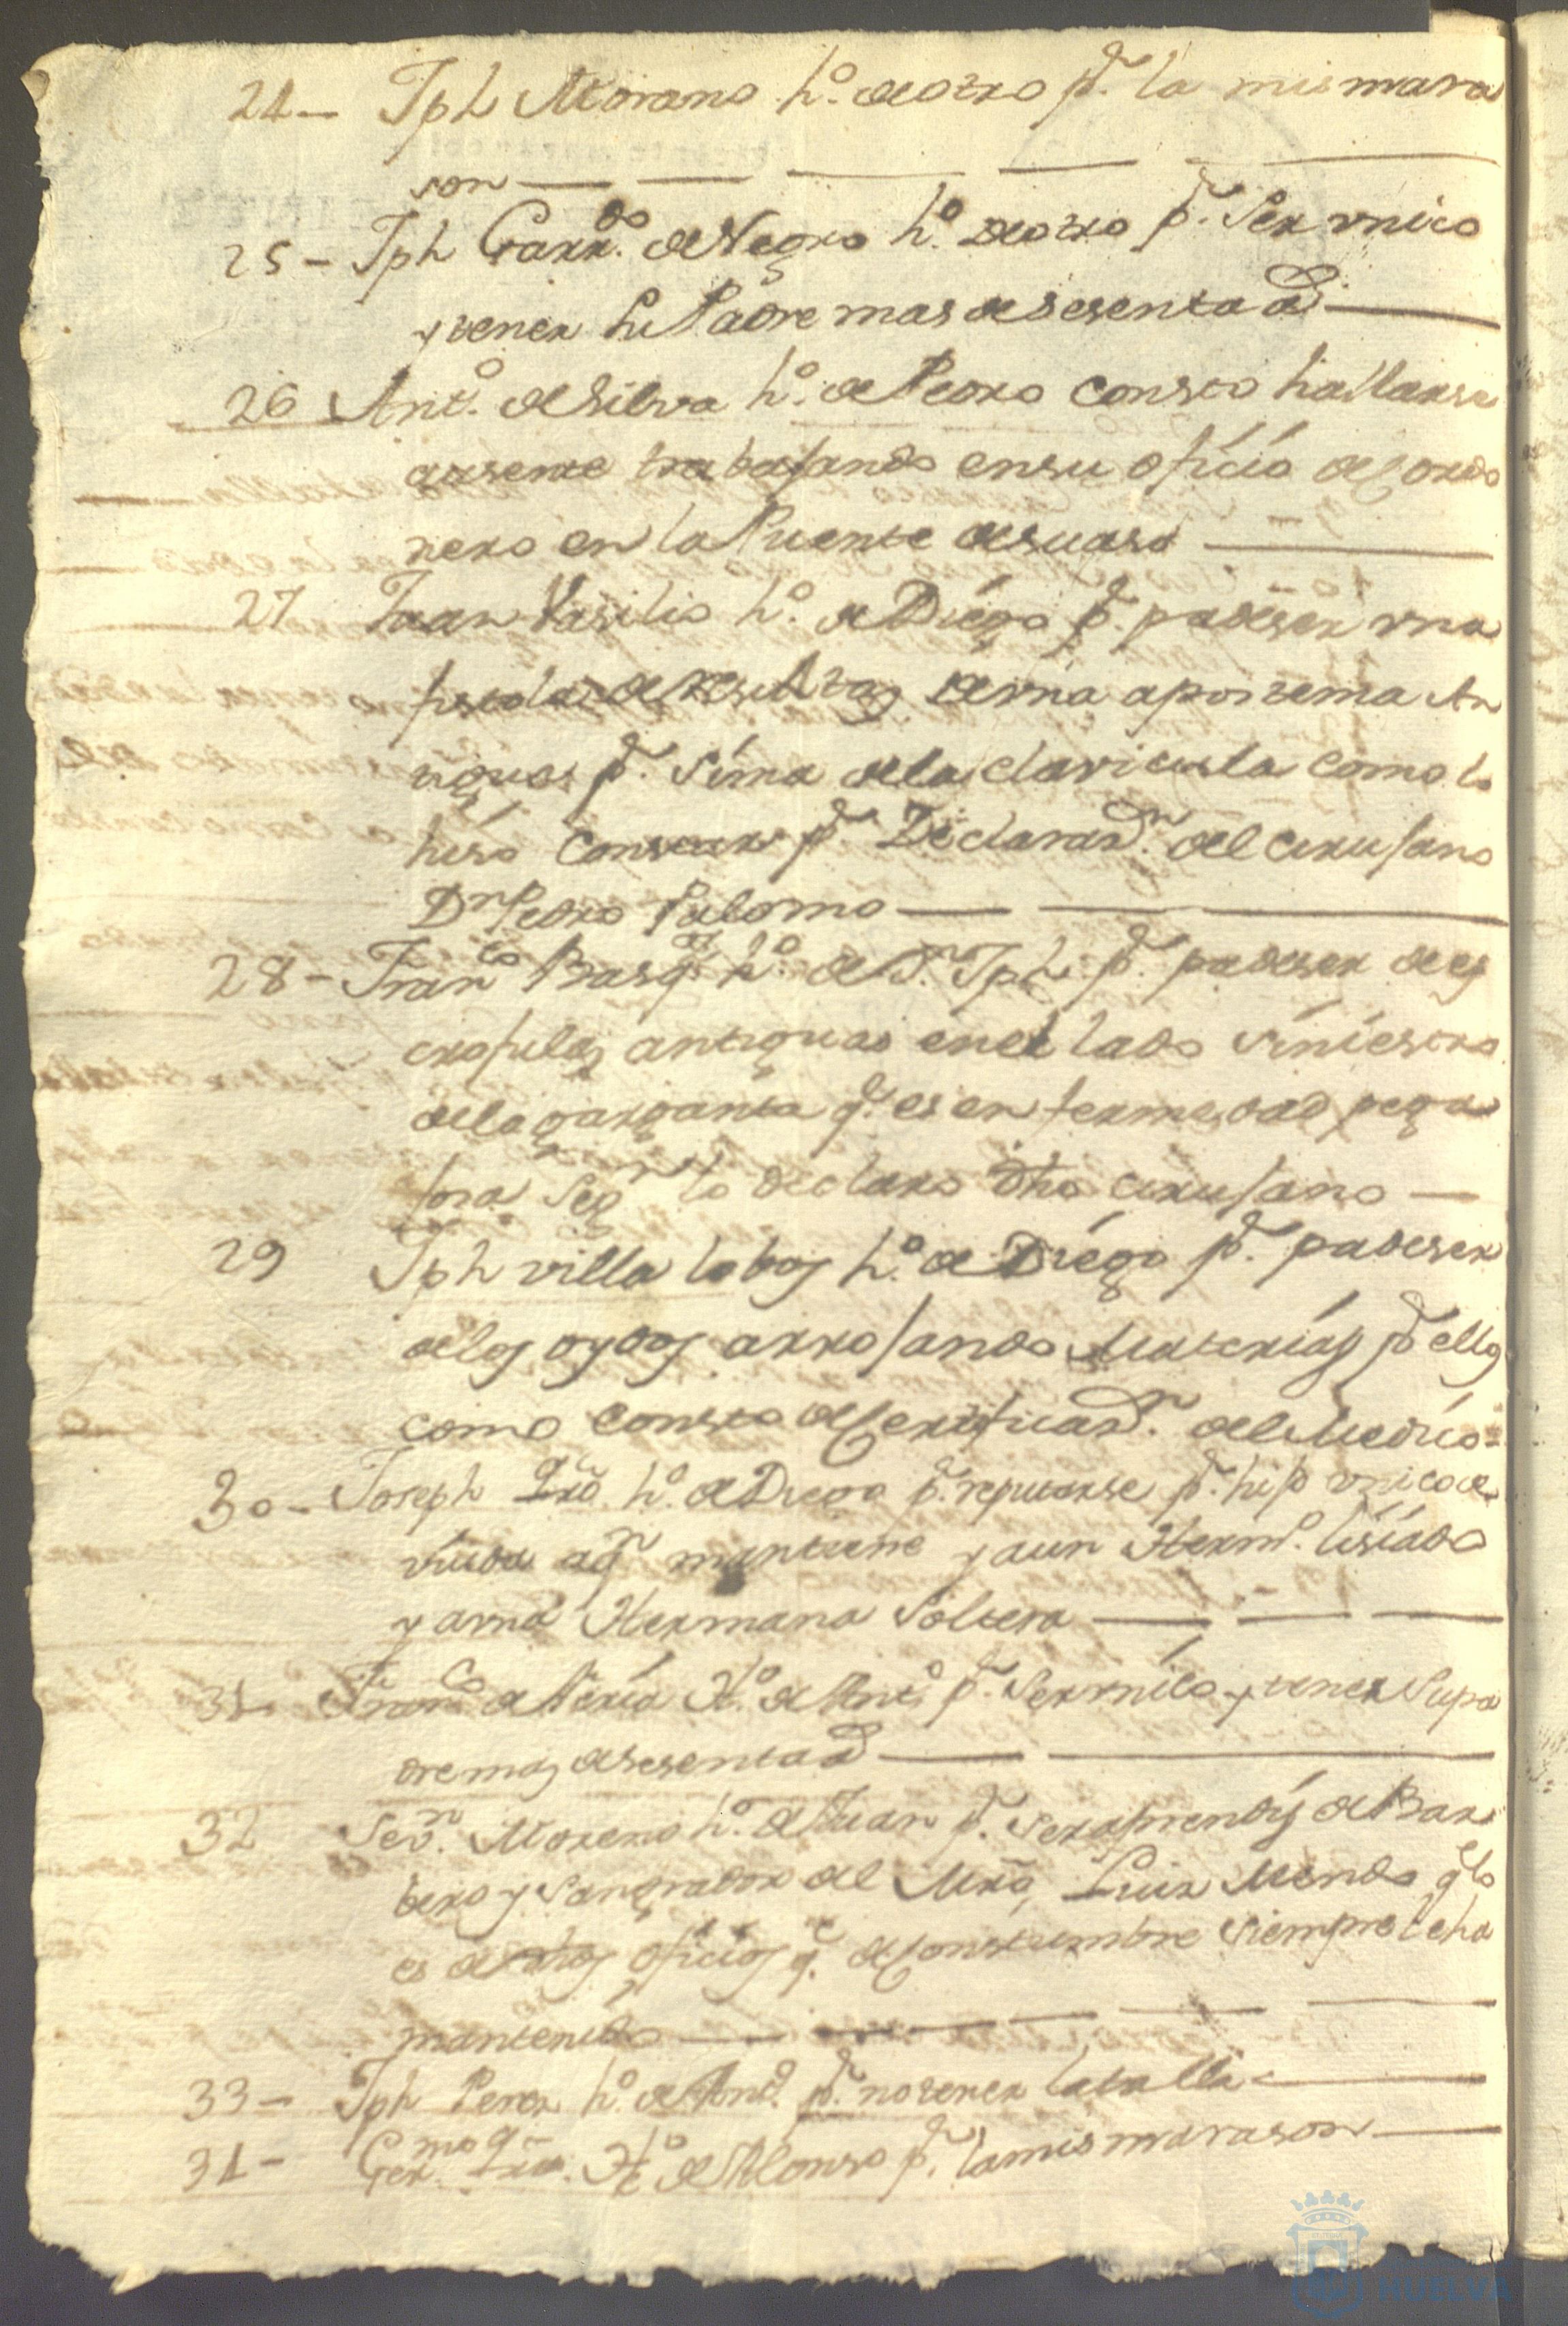 24 - Jph Morano h.º de otro p.r la misma ra
son
25 - Jph Garr.do de Negro h.º de otro p.r Ser vnico
y tener su Padre mas de sesenta a.s
26 Ant.º de Silva h.º de Pedro consto hallarse
ausente trabajando en su oficio de Cordo
nero en la Puente de suaso
27 Juan Basilio h.º de Diego p.r padeser vna
fistola de resultas de vna apostema An
tigua p.r sima de la clavicula como lo
hiso Constar p.r Declaras.n del cirujano
D.n Pedro Palomo
28 - Fran.co Basq.z h.º de D.n Jph p.r padeser de es
crofulas antiguas en el lado siniestro
de la garganta q.e es enfermedad pega
josa Seg.n lo declaro dho cirujano
29 Jph villa lobos h.º de Diego p.r padeser
de los oydos arrojando Materias p.r ellos
como consto de Certificas.n del Medico
30 - Joseph h.º de Diego p.r reputarse p.r hijo vnico de
viuda a q.n mantiene y a un Herm.º lisiado
y a vna Hermana Soltera
31 Fran.co de Neria H.º de Ant.º p.r Ser vnico y tener Su pa
dre mas de sesenta a.s
32 Seb.n Moreno h.º de Juan p.r ser aprendis de Bar
bero y Sangrador del Mro Luis Mendo q.e lo
es de dhos oficios q.e de constumbre siempre le ha
mantenido
33 - Jph Perez h.º de And.s p.r no tener la talla
34 - Ger.mo H.º de Alonso p.r la misma rason
HUELVA